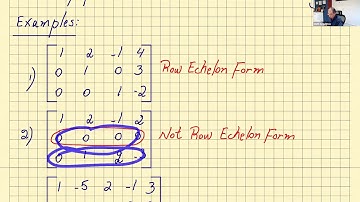 Examples:
1) 1 2 -1 4
0 1 0 3
0 0 1 -2
Row Echelon Form
2) 1 2 -1 2
0 0 0 0
0 1 2
Not Row Echelon Form
1 -5 2 -1 3